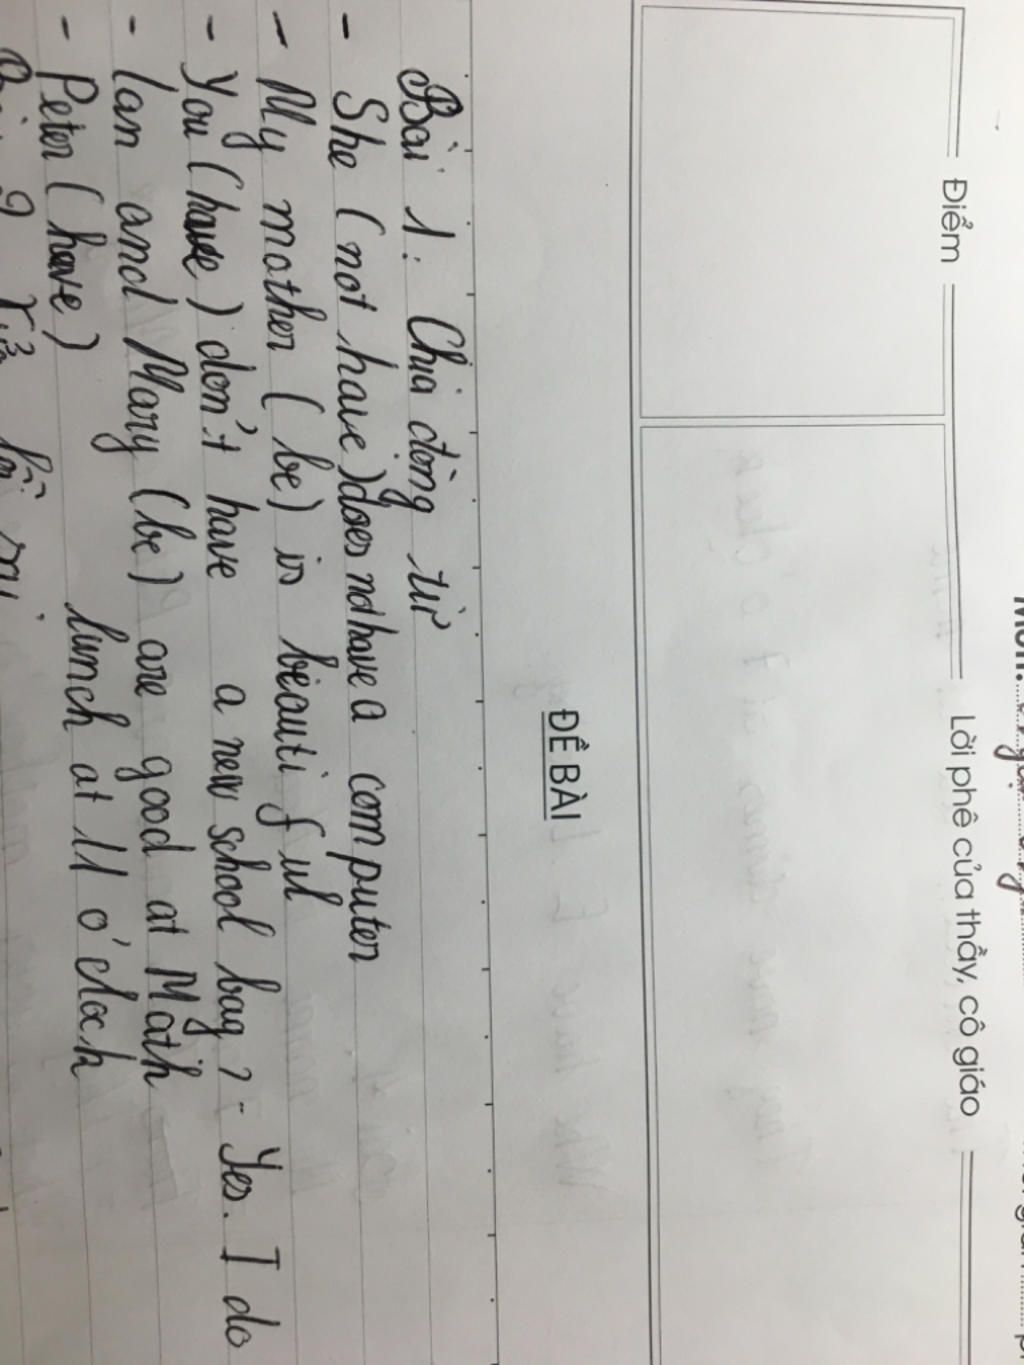 Môn:
Điểm
Lời phê của thầy, cô giáo
ĐỀ BÀI
Bài 1: Chia động từ
- She (not have) does not have a computer
- My mother (be) is beautiful
- You (have) don't have a new school bag? - Yes. I do
- Ian and Mary (be) are good at Math
- Peter (have) lunch at 11 o'clock